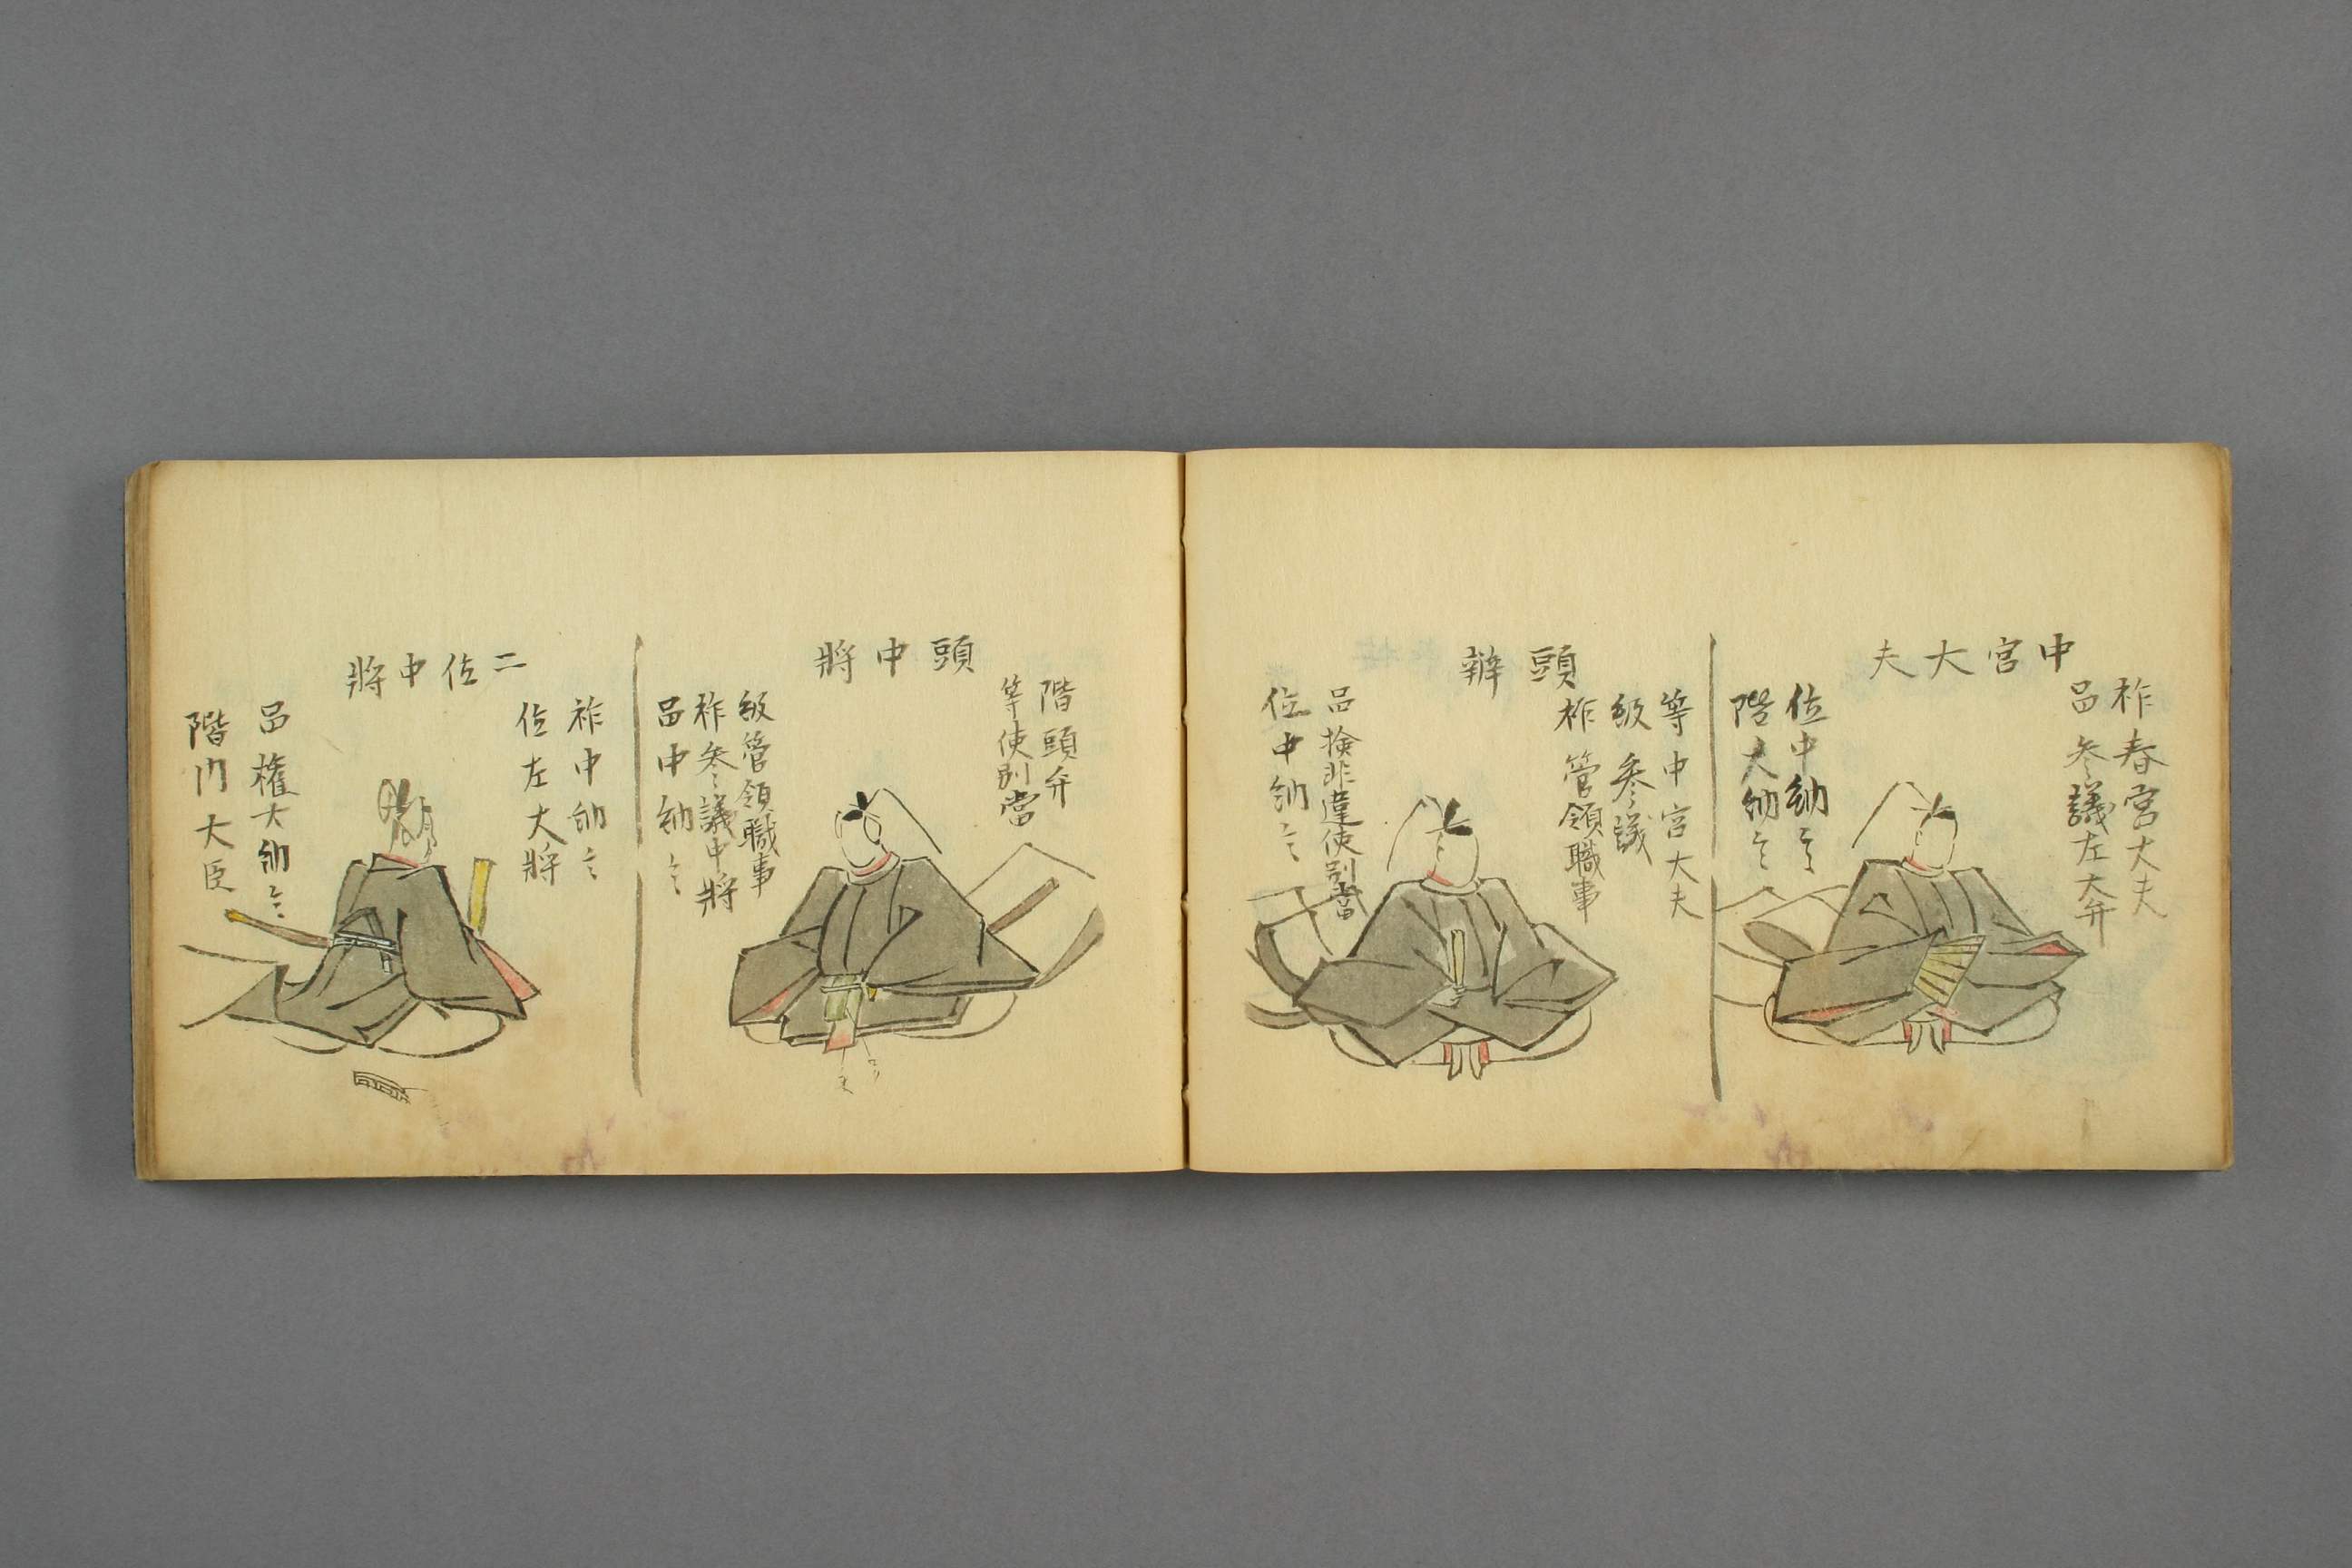 中宮大夫
祚春宮大夫
品参議左大弁
位中納言
階大納言
頭辨
等中宮大夫
級参議
祚管領職事
品検非違使別當
位中納言
頭中將
階頭弁
等使別當
級管領職事
祚参議中將
品中納言
二位中將
祚中納言
位左大將
品權大納言
階内大臣